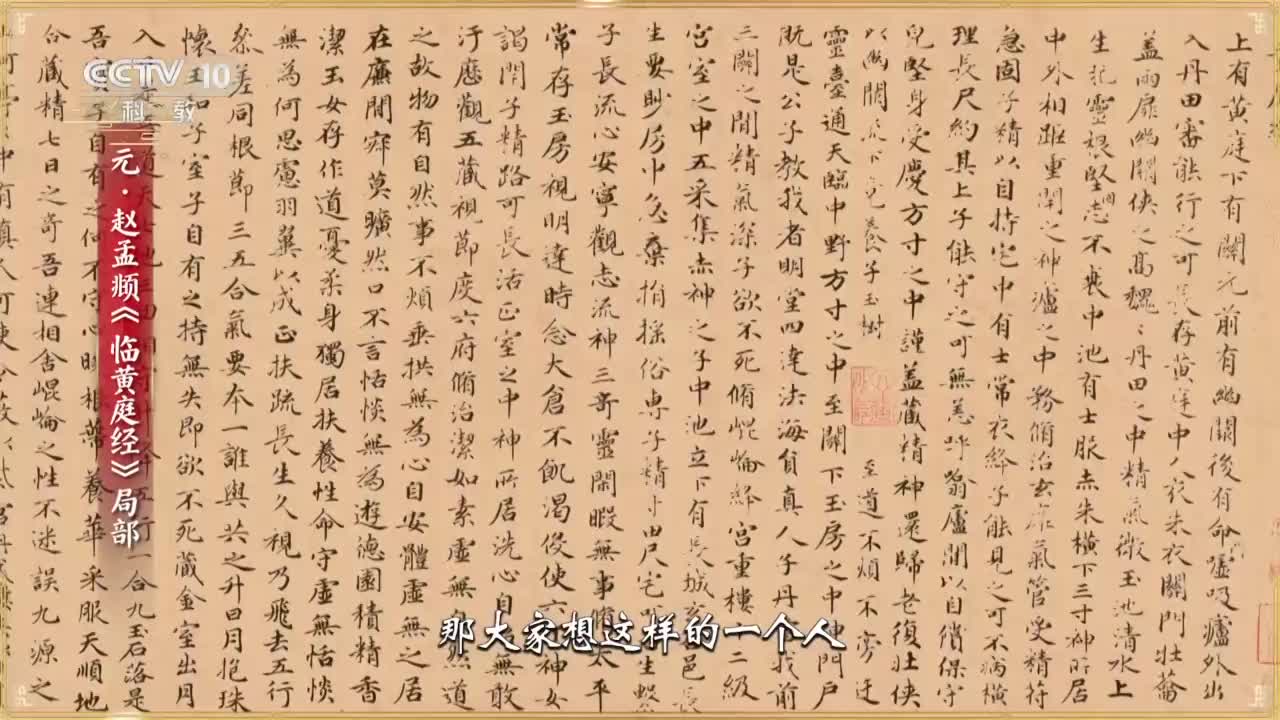 上有黄庭下有關元前有幽關後有命噓吸廬外出
入丹田審能行之可長存黄庭中人衣朱衣關門壯蘥
盖兩扉幽闕俠之髙巍〻丹田之中精氣微玉池清水上
生肥靈根堅志不衰中池有士服赤朱橫下三寸神所居
中外相距重閇之神廬之中務脩治玄膺氣管受精符
急固子精以自持宅中有士常衣絳子能見之可不病橫
理長尺約其上子能守之可無恙呼翕廬閒以自償保守
兒堅身受慶方寸之中謹盖藏精神還歸老復壯俠
以幽闕流下竟養子玉樹 至道不煩不旁迕
靈臺通天臨中野方寸之中至關下玉房之中神門戶
既是公子教我者明堂四達法海負真人子丹我前
三關之閒精氣深子欲不死脩崐崘絳宮重樓二級
宮室之中五采集赤神之子中池立下有長城玄邑長
生要眇房中急棄捐摇俗専子精寸田尺宅生繫
子長流心安寧觀志流神三奇靈閑暇無事脩太平
常存玉房視明達時念大倉不飢渴侵使六神女
謁閇子精路可長活正室之中神所居洗心自無敢
汙歷觀五藏視節度六府脩治潔如素虛無自然道
之故物有自然事不煩垂拱無為心自安體虛無之居
在廉閒寂莫曠然口不言恬惔無為遊德園積精香
潔玉女存作道憂柔身獨居扶養性命守虛無恬惔
無為何思慮羽翼以成正扶疏長生久視乃飛去五行
叅差同根節三五合氣要本一誰與共之升日月抱珠
懷玉和子室子自有之持無失即欲不死藏金室出月
入道天五行一合九玉石落是
吾寶子自有之何不守心曉根蔕養華采服天順地
合藏精七日之奇吾連相舍崐崘之性不迷誤九源之
CCTV 10
科教
元·赵孟頫《临黄庭经》局部
那大家想这样的一个人